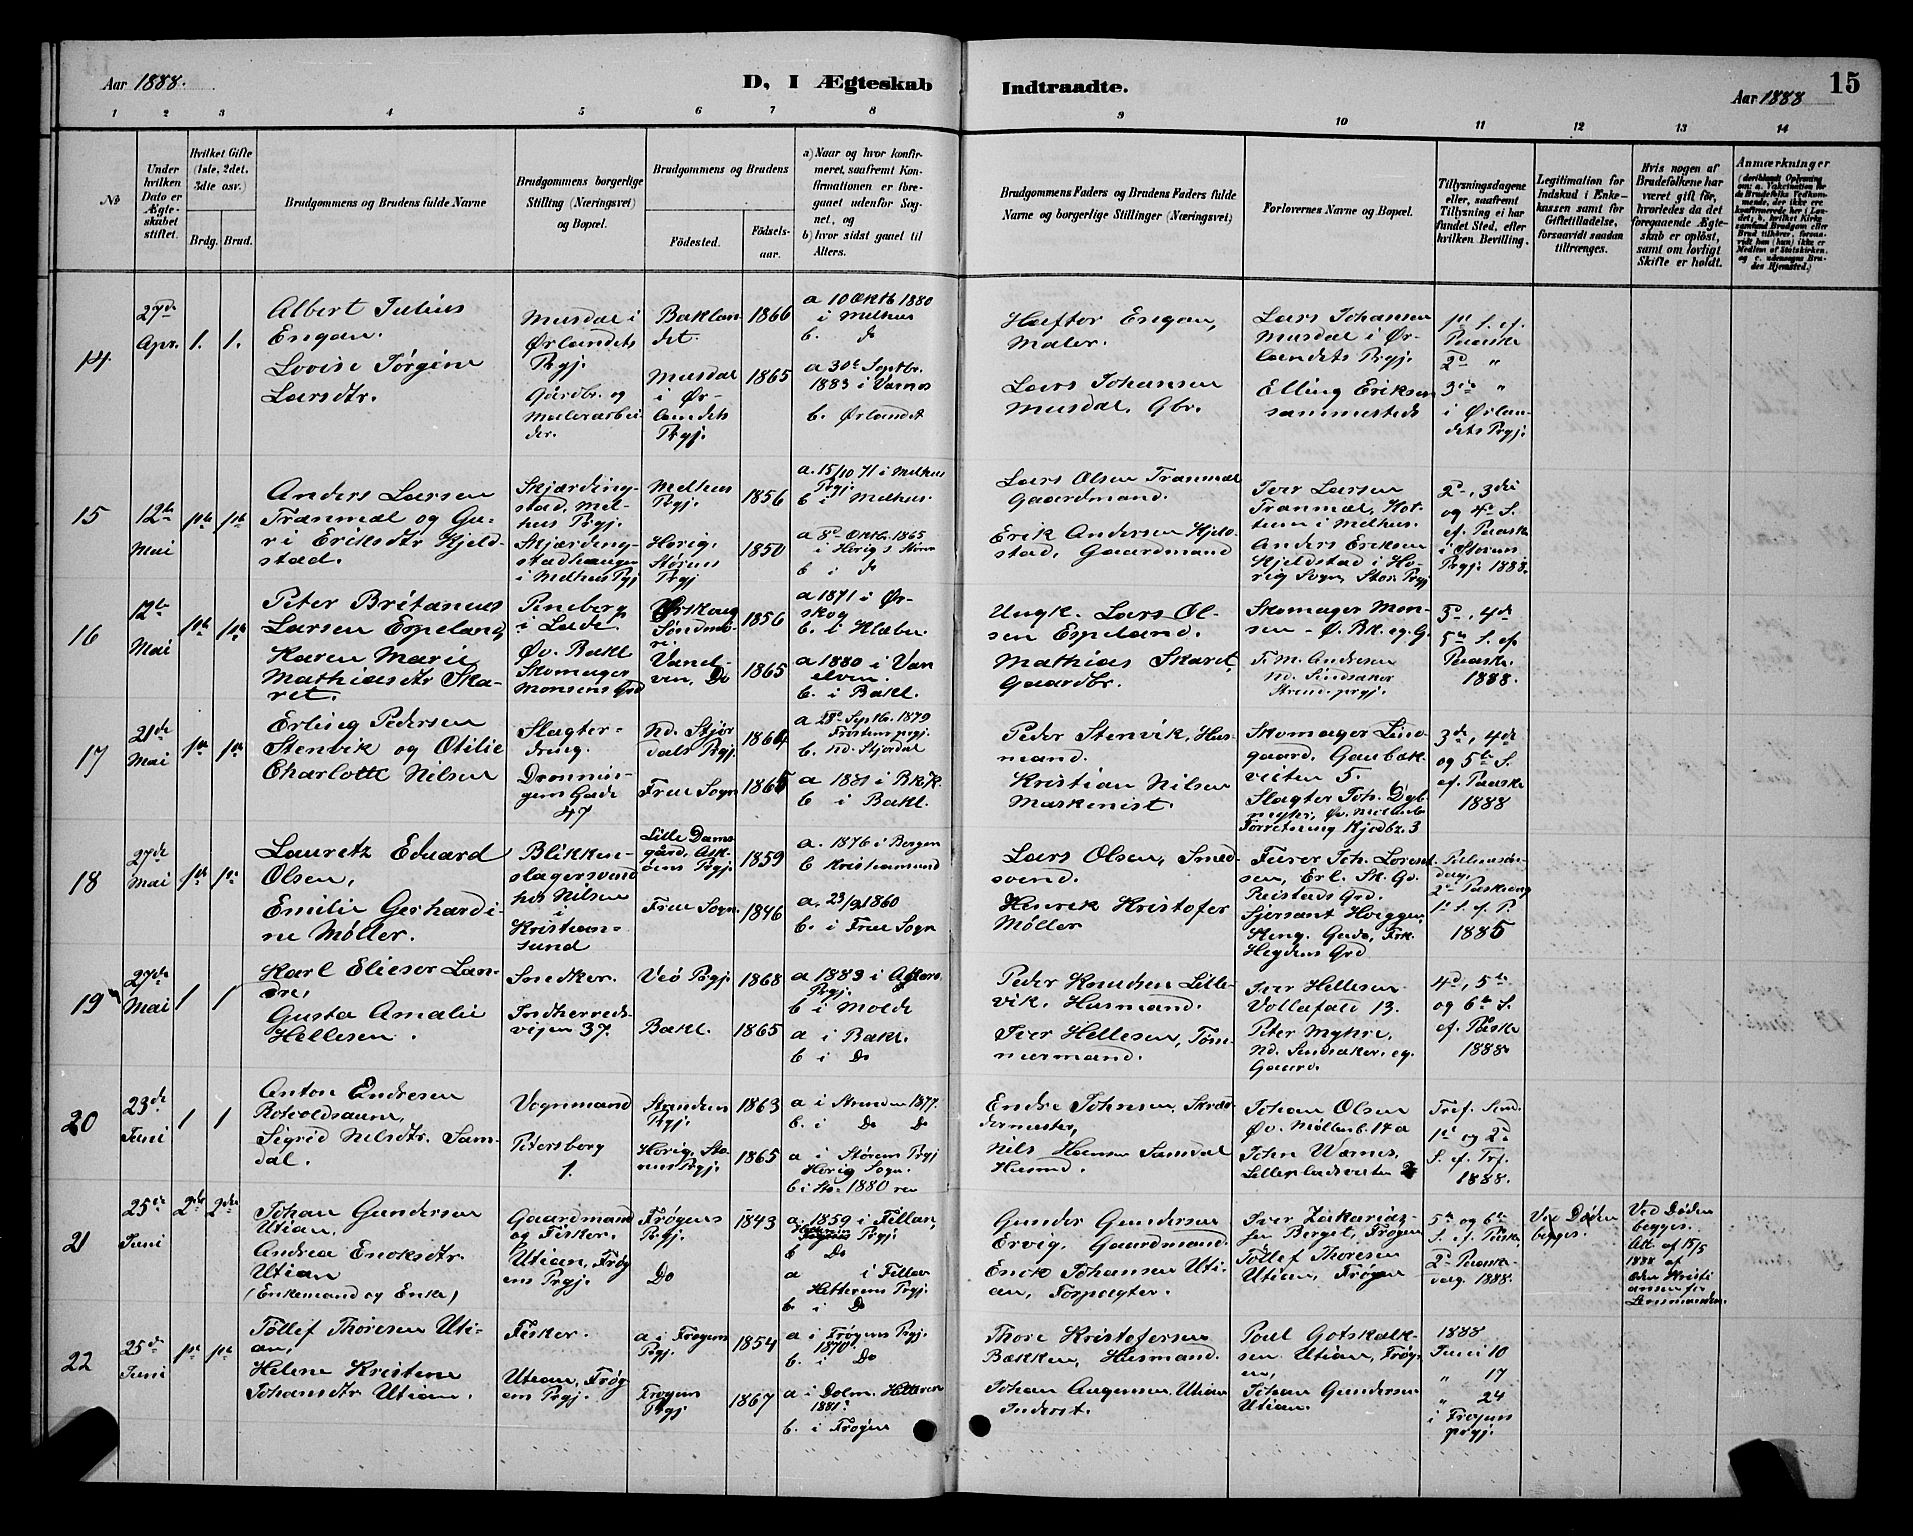 Aar 1888.
D, I Ægteskab
Indtraadte.
15
Aar 1888
1 2 3 4 5 6 7 8 9 10 11 12 13 14
No
Under hvilken Dato er Ægteskabet stiftet.
Hvilket Gifte (1ste, 2det, 3die osv.)
Brdg. Brud.
Brudgommens og Brudens fulde Navne
Brudgommens borgerlige Stilling (Næringsvei) og Bopæl.
Brudgommens og Brudens
Fødested.
Fødselsaar.
a) Naar og hvor konfirmeret, saafremt Konfirmationen er foregaaet udenfor Sognet, og
b) hvor sidst gaaet til Alters.
Brudgommens Faders og Brudens Faders fulde Navne og borgerlige Stillinger (Næringsvei)
Forlovernes Navne og Bopæl.
Tillysningsdagene eller, saafremt Tillysning ei har fundet Sted, efter hvilken Bevilling.
Legitimation for Indskud i Enkekassen samt for Giftetilladelse, forsaavidt saadan tiltrænges.
Hvis nogen af Brudefolkene har været gift før, hvorledes da det foregaaende Ægteskab er opløst, samt om lovligt Skifte er holdt.
Anmærkninger
14
27de Apr. 1. 1.
Albert Julius
Engan.
Lovise Jørgine
Larsdtr.
Musdal i
Ørlandets
Prgj.
Gårdbr. og
Malerarbei-
der.
Baklan-
det.
Musdal
i Ør-
landets
Prgj.
1866
1865
a 10 Oktb 1880
i Melhus
b. do
a 30te Septbr.
1883 i Varnes
b. Ørlandet
Hafter Engan,
Maler.
Lars Johansen
Musdal, Gbr.
Lars Johansen
Musdal i Ør-
landets Prgj.
Elling Eriksen
sammesteds
1ste S. ef.
Paaske
2d "
3die "
i Ørlan-
dets Prgj.
15
12te Mai 1ste 1ste
Anders Larsen
Tranmæl og Gu-
ri Eriksdtr Kjeld-
stad.
Skjærding-
stad, Mel-
hus Prgj.
Skjærding-
stadhaugen
i Melhus Prgj
Melhus
Prgj.
Horig,
Størens
Prgj
1856
1850
a. 15/10 71 i Melhus
Prgj.
b i Melhus.
a 8de Oktb. 1865
i Horig s Støren
b i do
Lars Olsen Tranmæl
Gaardmand.
Erik Andersen Kjeld-
stad, Gaardmand
Iver Larsen
Tranmæl,
i Melhus.
Anders Eriksen
Kjeldstad i Ho-
rig Sogn, Stor. Prgj
2d, 3die
og 4de S.
ef. Paaske
i Størens
Prgj. 1888.
16
12te Mai 1ste 1ste
Peter Britanus
Larsen Empeland
Karen Marie
Mathiasdtr Ska-
ret.
Peneberg
i Lade.
Øv. Bakl
Skomager
Monsens Grd
Ørskoug
Søndmø-
re.
Vanel-
ven, Do
1856
1865
a 1871 i Ør-
skog
b. i Klæbu.
a 1880 i Van
elven.
b. i Bakl.
Ungk. Lars Ol-
sen Empeland.
Mathias Skaret,
Gaardbr.
Skomager Mon-
sen - Ø. Bk. eg. G.
T. M. Andresen
Nd. Sindsaker
Strind. prgj.
3d, 4de
5te S. ef.
Paaske.
1888.
17
21de Mai 1ste 1ste
Erling Pedersen
Stenvik og Otilie
Charlotte Nilsen
Slagter-
dreng.
Dronnin-
gens Gade
47
Nd. Stjør
dals Prgj.
Frue Sogn
1864
1865
a 28de Septbr. 1879
prgj.
b. Nd. Stjørdal
a 1881 i Bkk.
b i Bakl.
Peder Stenvik, Hus-
mand.
Kristian Nilsen
Maskinist.
Skomager Lind-
gaard, Gaubæk-
veiten 5.
Slagter Joh. Dyb-
Forretning Kjødbz. 3
3de, 4de
og 5te S.
ef. Paaske
1888
18
27de Mai 1ste 1ste
Lauretz Eduard
Olsen,
Emilie Gerhardi-
ne Møller.
Blikken-
slagersvend
hos Nilsen
i
Kristian-
sund
Lille Dams-
gård, Ask-
øens Prgj.
Frue Sogn.
1859
1846
a. 1876 i Bergen
b Kristiansund
a. 23/9 1860
b. i Frue Sogn
Lars Olsen, Smed-
svend.
Henrik Kristofer
Møller
Furer Joh. Lorent
sen, Erl. Sk. Gd.
Reistads Grd.
Sjersant Hoiggen,
Kong. Gade, Frk.
Hegdens Grd
2d Paaskedag
1ste S. ef. P.
1885
19
27de Mai 1 1
Karl Elieser Lan-
dre,
Gusta Amalie
Hellesen.
Snedker.
Indherreds-
vejen 37.
Veø Prgj.
Bakl.
1868
1865
a 1883 i
Prgj.
b i Molde
a i Bakl.
b i Do
Peder Knudsen Lille-
vik, Husmand.
Iver Hellesen, Tøm-
mermand.
Iver Hellesen
Vollafald 13.
Peter Myhre,
Nd. Sindsaker, eg.
Gaard.
4d, 5te
og 6te S.
ef. Påske
1888.
20
23de Juni 1 1
Anton Endresen
Rotvoldsaunn,
Sigrid Nilsdtr. Sam-
dal.
Vognmand
Petersborg
1.
Strindens
Prgj.
Horig, Stø-
rens Prgj.
1863
1865
a i Strinden 1877.
b. i Do Do
a i Størens Prgj
Horig Sogn.
b i 1880
Endre Johnsen, Skræd-
dermester,
Nils Hansen Samdal
Husmd.
Johan Olsen
Øv. Møllenb. 14a
John Wærnes,
Tref. Sønd.
1ste og 2d
S. ef. Trf.
1888.
21
25de Juni 2de 2den
Johan Gundersen
Utian.
Andrea Enoksdtr.
Utian
(Enkemand og Enke)
Gaardmand
og Fisker.
Utian, Frøy
ens Prgj.
Frøyens
Prgj.
Do
1843
a. 1859 i Fillan,
Prgj.
b Do
a i Fillan
Hitterens Prgj.
b. i Do
Gunder Gundersen
Ervig, Gaardmand.
Enok Johansen Uti-
an, Forpagter.
Iver Zakarias-
sen Berget, Frøyen
Tollef Thoresen
Utian, Frøyen
5te og 6te
S. ef. Påske,
2d Paaske-
dag. 1888.
Ved Døden
begges.
Ved Døden
begges.
Att. af 15/5
1888 af
Kristi
ansen for
Lensmanden.
22
25de Juni 1ste 1ste
Tollef Thoresen Uti-
an,
Helene Kristine
Johansdtr Utian.
Fisker.
Utian, Frøy
ens Prgj.
a i Frøyens
Prgj.
Frøyens
Prgj
1854
1867
a i Frøyens Prgj.
1870
b. i Do
a i Dolm. Hitteren
1881.
b. i Frøyen
Thore Kristofersen
Bækken, Husmand.
Johan Utian
Inderst.
Poul Gotskalk-
sen Utian, Frøy-
en,
Johan Gundersen
Utian.
1888
Juni 10
" 17
" 24
i Frøyens
prgj.